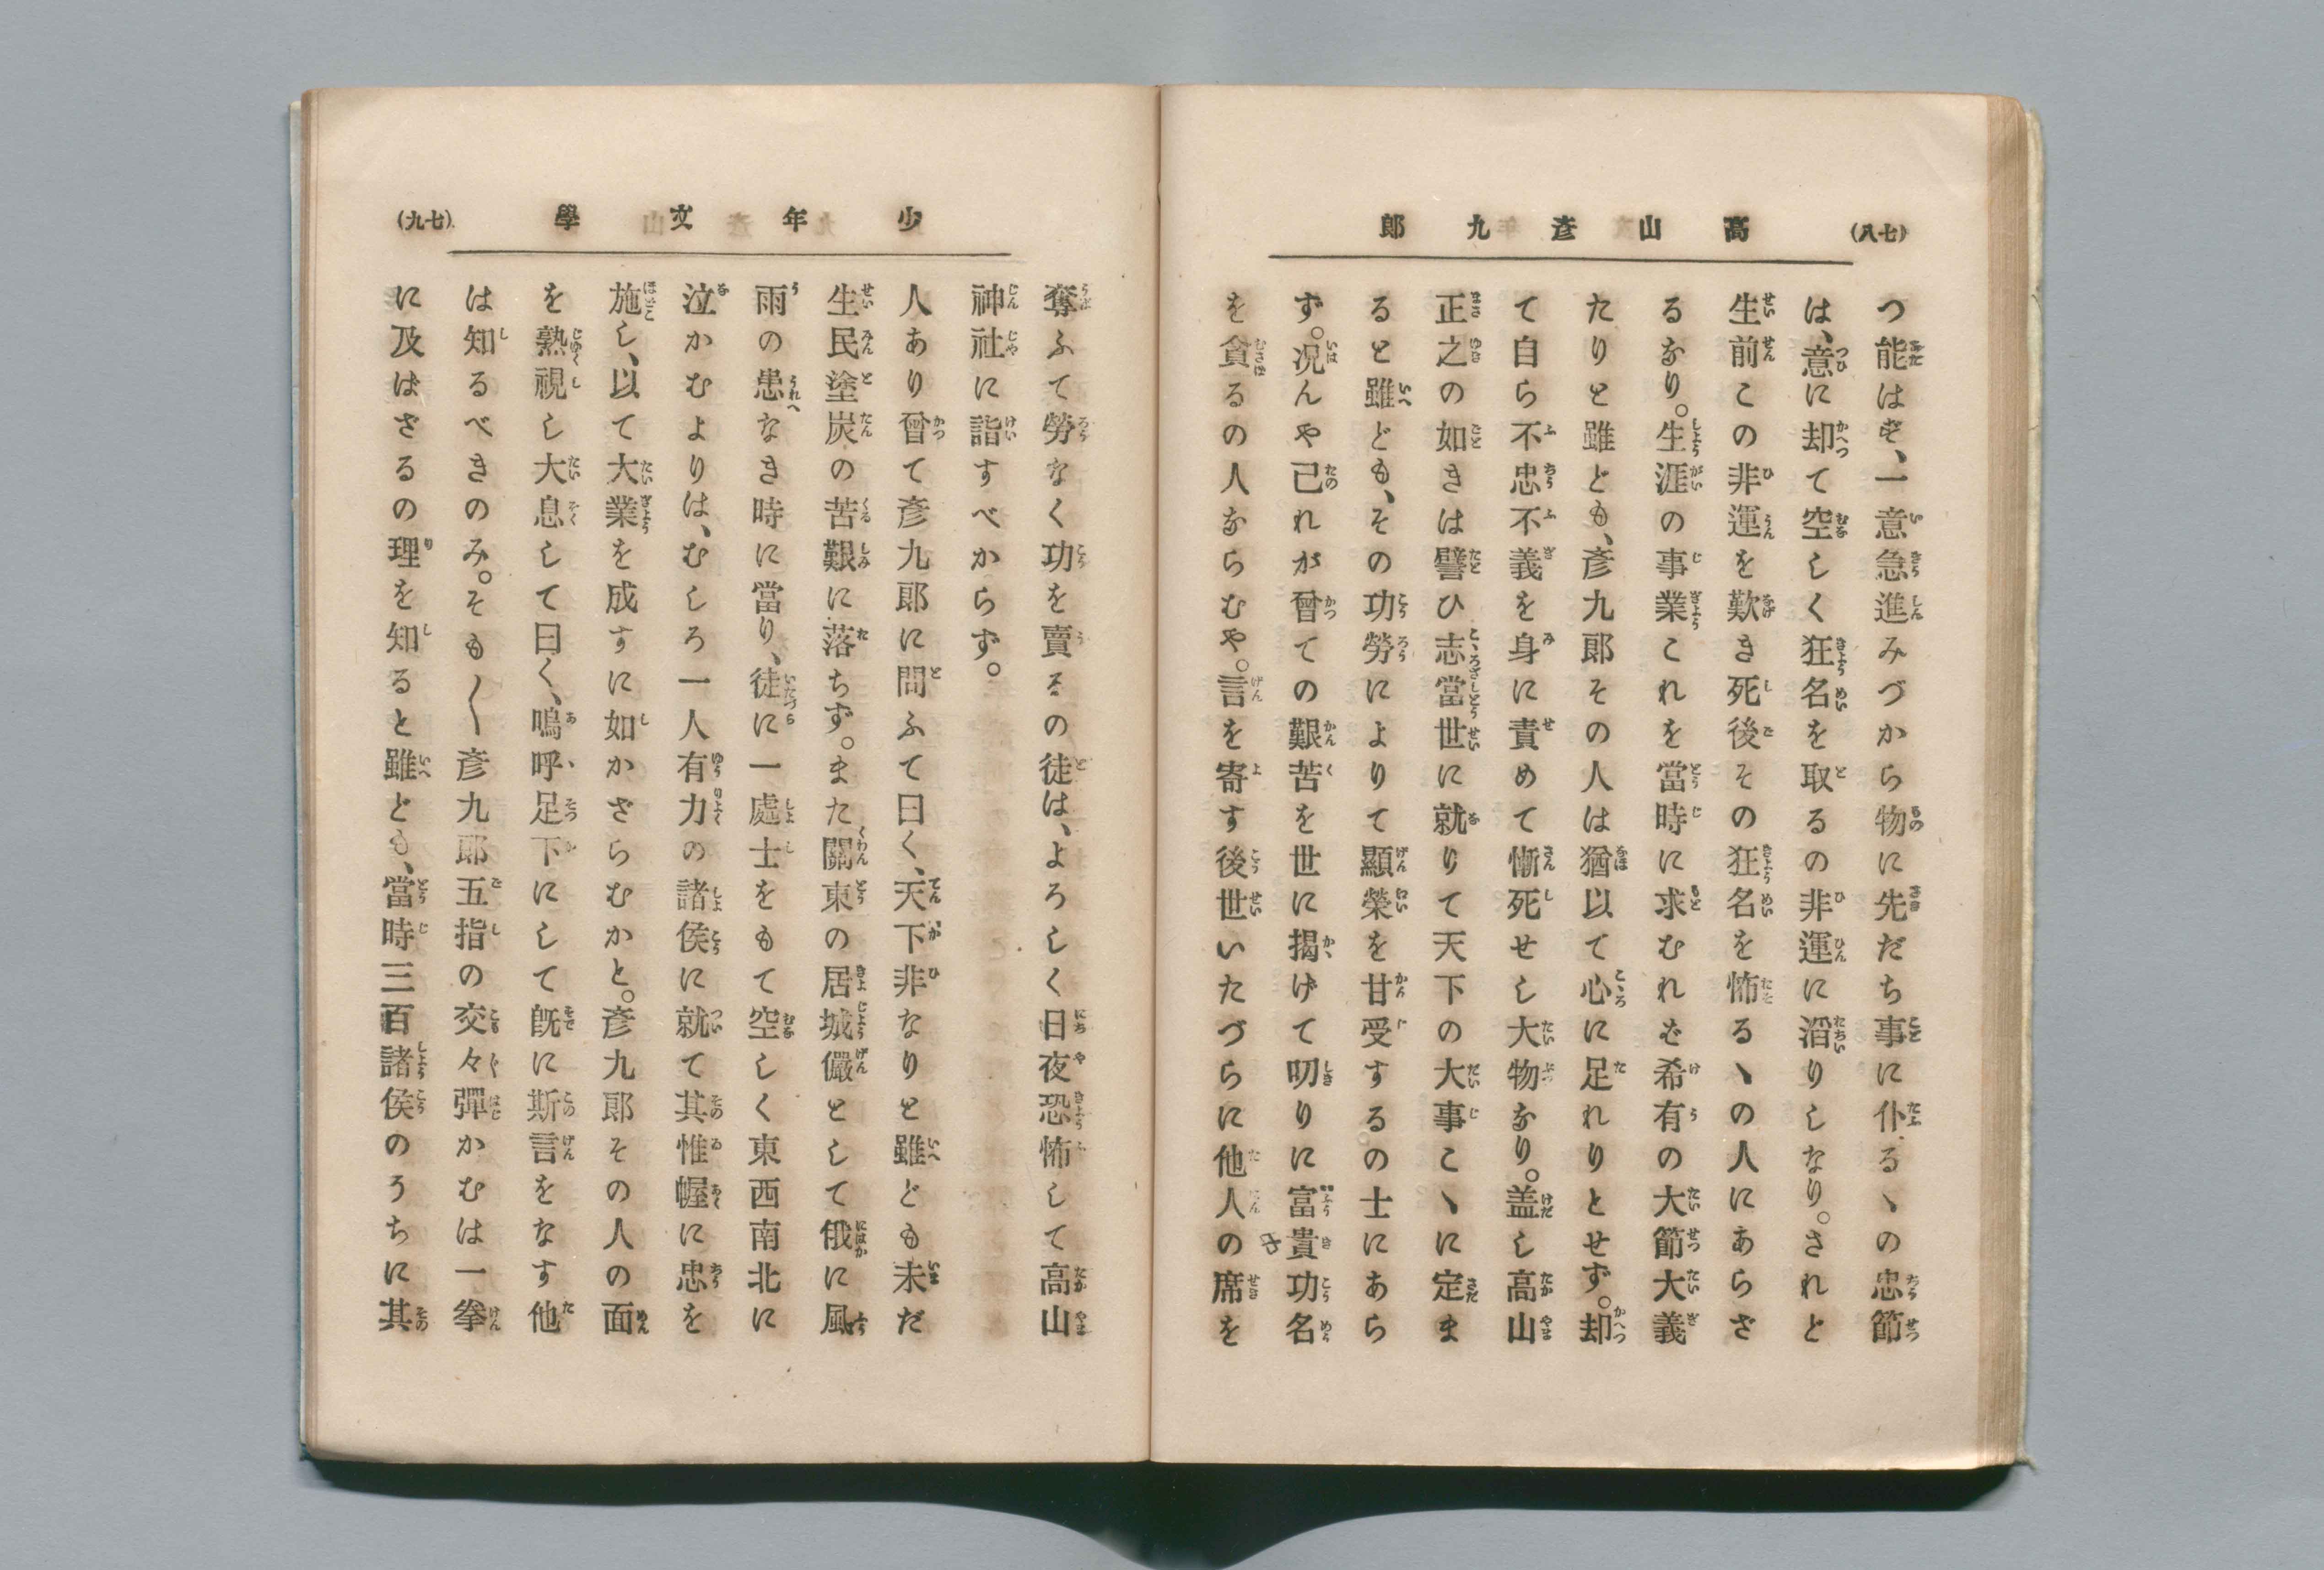 高山彦九郎
(七八)
つ能はず、一意急進みづから物に先だち事に仆るゝの忠節
は、意に却て空しく狂名を取るの非運に滔りしなり。されど
生前この非運を歎き死後その狂名を怖るゝの人にあらざ
るなり。生涯の事業これを當時に求むれば希有の大節大義
たりと雖とも、彦九郎その人は猶以て心に足れりとせず。却
て自ら不忠不義を身に責めて慚死せし大物なり。盖し高山
正之の如きは譬ひ志當世に就りて天下の大事こゝに定ま
ると雖ども、その功勞によりて顯榮を甘受するの士にあら
ず。况んや己れが曾ての艱苦を世に揭げて叨りに富貴功名
を貪るの人ならむや。言を寄す後世いたづらに他人の席を
少年文學
(七九)
奪ふて勞なく功を賣るの徒は、よろしく日夜恐怖して高山
神社に詣すべからず。
人あり曾て彦九郎に問ふて曰く、天下非なりと雖ども未だ
生民塗炭の苦艱に落ちず。また關東の居城儼として俄に風
雨の患なき時に當り、徒に一處士をもて空しく東西南北に
泣かむよりは、むしろ一人有力の諸侯に就て其惟幄に忠を
施し、以て大業を成すに如かざらむかと。彦九郎その人の面
を熟視し大息して曰く、嗚呼足下にして旣に斯言をなす他
は知るべきのみ。そも〳〵彦九郎五指の交々彈かむは一拳
に及ばざるの理を知ると雖とも、當時三百諸侯のうちに其